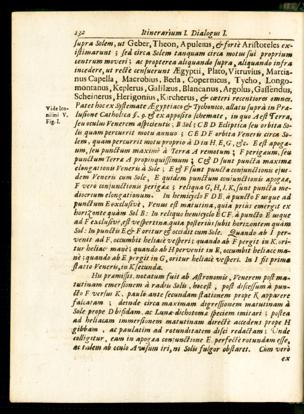 230 Itinerarium I. Dialogus I.
supra Solem, ut Geber, Theon, Apulenus, & fortè Aristoteles ex-
istimarunt ; sed circa Solem tanquam circa motus sui proprium
centrum moveri: ac propterea aliquando supra, aliquando infra
incedere, ut rectè censuerunt Ægyptii, Plato, Vitruvius, Martia-
nus Capella, Macrobius, Beda, Copernicus, Tycho, Longo-
montanus, Keplerus, Galilæus, Blancanus, Argolus, Gassendus,
Scheinerus, Herigonius, Kircherus, & cæteri recentiores omnes.
Patet hoc ex Systemate Ægyptiaco & Tychonico, allato suprà in Præ-
Vide Ico- lusione Catholica §. 9. & ex apposito schemate, in quo A est Terra,
nismi V. seu oculus Venerem aspicientis: B Sol: C B D Ecliptica seu orbita So-
Fig. I. lis quam percurrit motu annuo ; C E D F orbita Veneris circa So-
lem, quam percurrit motu proprio à D in H, E, G, &c. E est apogæ-
um, seu punctum maximè à Terra A remotum ; F perigæum, seu
punctum Terræ A propinquissimum ; C & D sunt puncta maxima
elongationis Veneris à Sole ; E & F sunt puncta conjunctionis ejus-
dem Veneris cum Sole, E quidem punctum conjunctionis apogææ,
F verò conjunctionis perigææ ; reliqua G, H, I, K, sunt puncta me-
diocrum elongationum. In hemicyclo F D E, à puncto F usque ad
punctum E exclusivè, Venus est matutina, quia prius emergit ex
horizonte quàm Sol B: In reliquo hemicyclo E C F, à puncto E usque
ad F exclusivè, est vespertina, quia posterius subit horizontem quàm
Sol: In punctis E & F oritur & occidit cum Sole. Quando ab I per-
venit ad F, occumbit heliacè vesperi; quando ab F pergit in K, ori-
tur heliacè manè; quando ab H pervenit in E, occumbit heliacè ma-
nè; quando ab E pergit in G, oritur heliacè vesperi. In I fit prima
statio Veneris, in K secunda.
Hu præmissis, notatum fuit ab Astronomis, Venerem post ma-
tutinam emersionem à radiis Solis, hoc est, post discessum à pun-
cto F versus K, paulo ante secundam stationem prope K, apparere
falcatam ; deinde circa maximam digressionem matutinam à
Sole prope D bifidam, ac Lunæ dichotomæ speciem imitari ; postea
ad heliacam immersionem matutinam directè accedens prope H
gibbam, ac paulatim ad rotunditatem disci redactam : Unde
colligitur, eam in apogæa conjunctione E perfectè rotundam esse,
ac talem ab oculo A visum iri, ni Solis fulgor obstaret. Cùm verò
ex